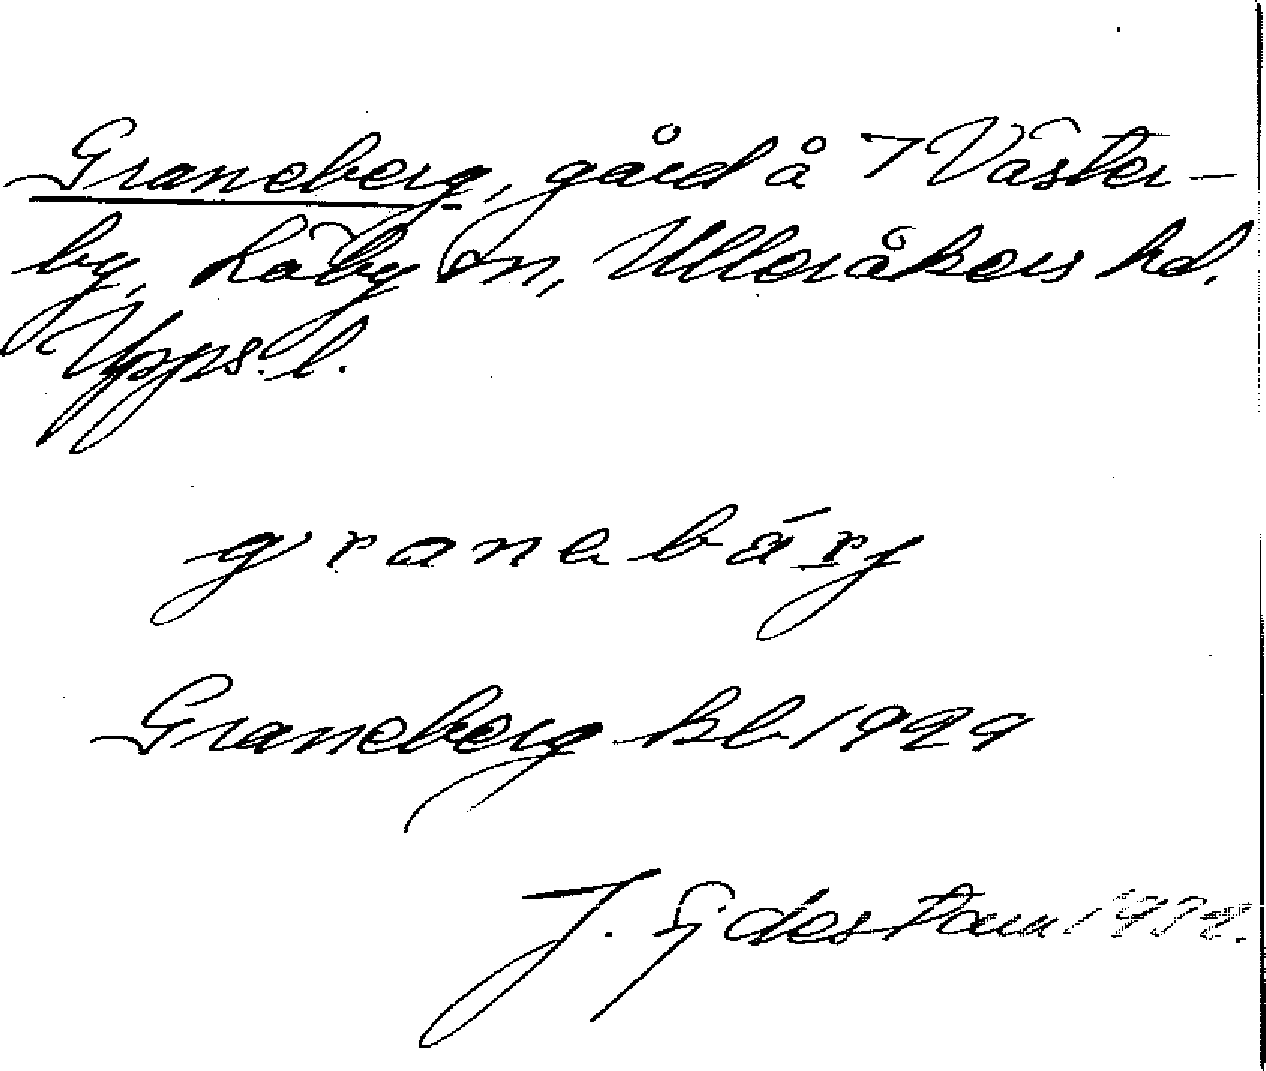 Graneberg, gård å 7 Väster-
by, Läby sn, Ulleråkers hd.
Upps. l.
granebärj
Graneberg kb 1929
J.